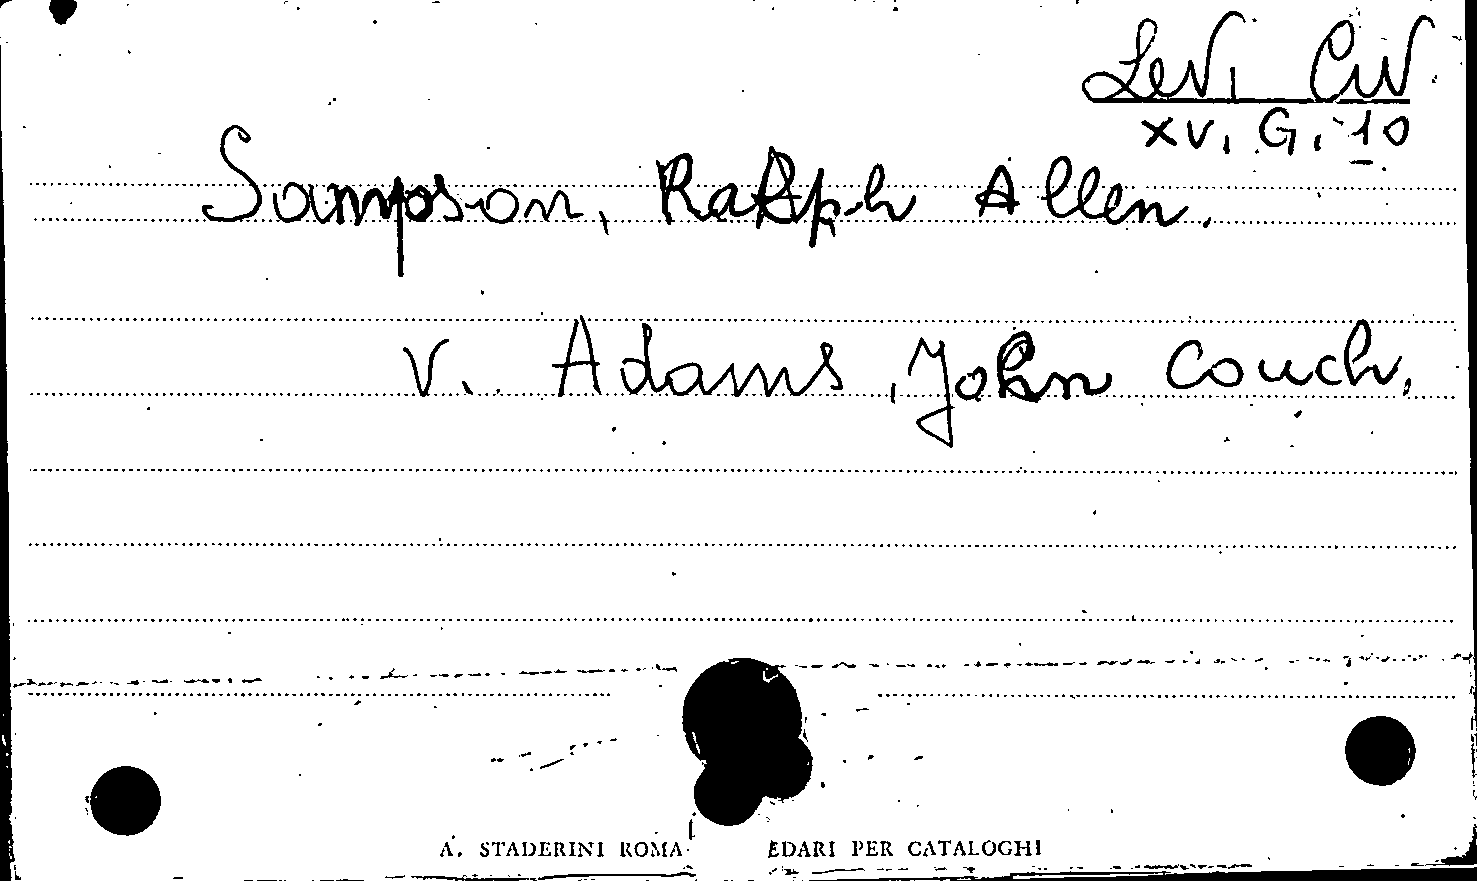 Levi Civ.
XV. G. 10
Sampson, Ralph Allen.
V. Adams, John Couch.
A. STADERINI ROMA EDARI PER CATALOGHI